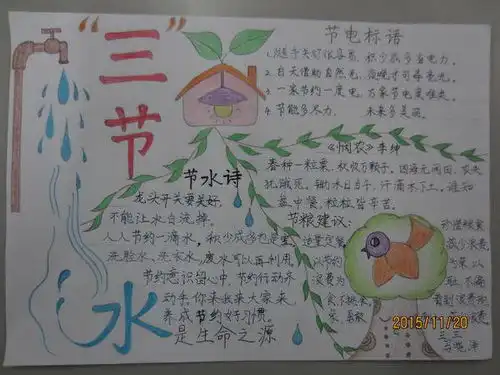 "三"节
节电标语
1.随手关灯很容易，积少成多省电力。
2.白天借助自然光，夜晚才可春亮光。
3.一家节约一度电，万家节电度难关。
4.节能多尽力，未来多美丽。
《悯农》李绅
春种一粒粟，秋收万颗子，四海无闲田，农夫
犹饿死。锄禾日当午，汗滴禾下土，谁知
盘中餐，粒粒皆辛苦。
节水诗
龙头开关要关好，
不能让水白流掉。
人人节约一滴水，积少成多也是宝，
洗脸水，洗衣水，废水可以再利用。
节约意识留心中，节约行动齐
动手，你来我来大家来，
养成节约好习惯。
水
是生命之源
节粮建议：
适量定餐
减少浪费
以节约
浪费为
食，不挑
菜，县
三三
2015/11/20